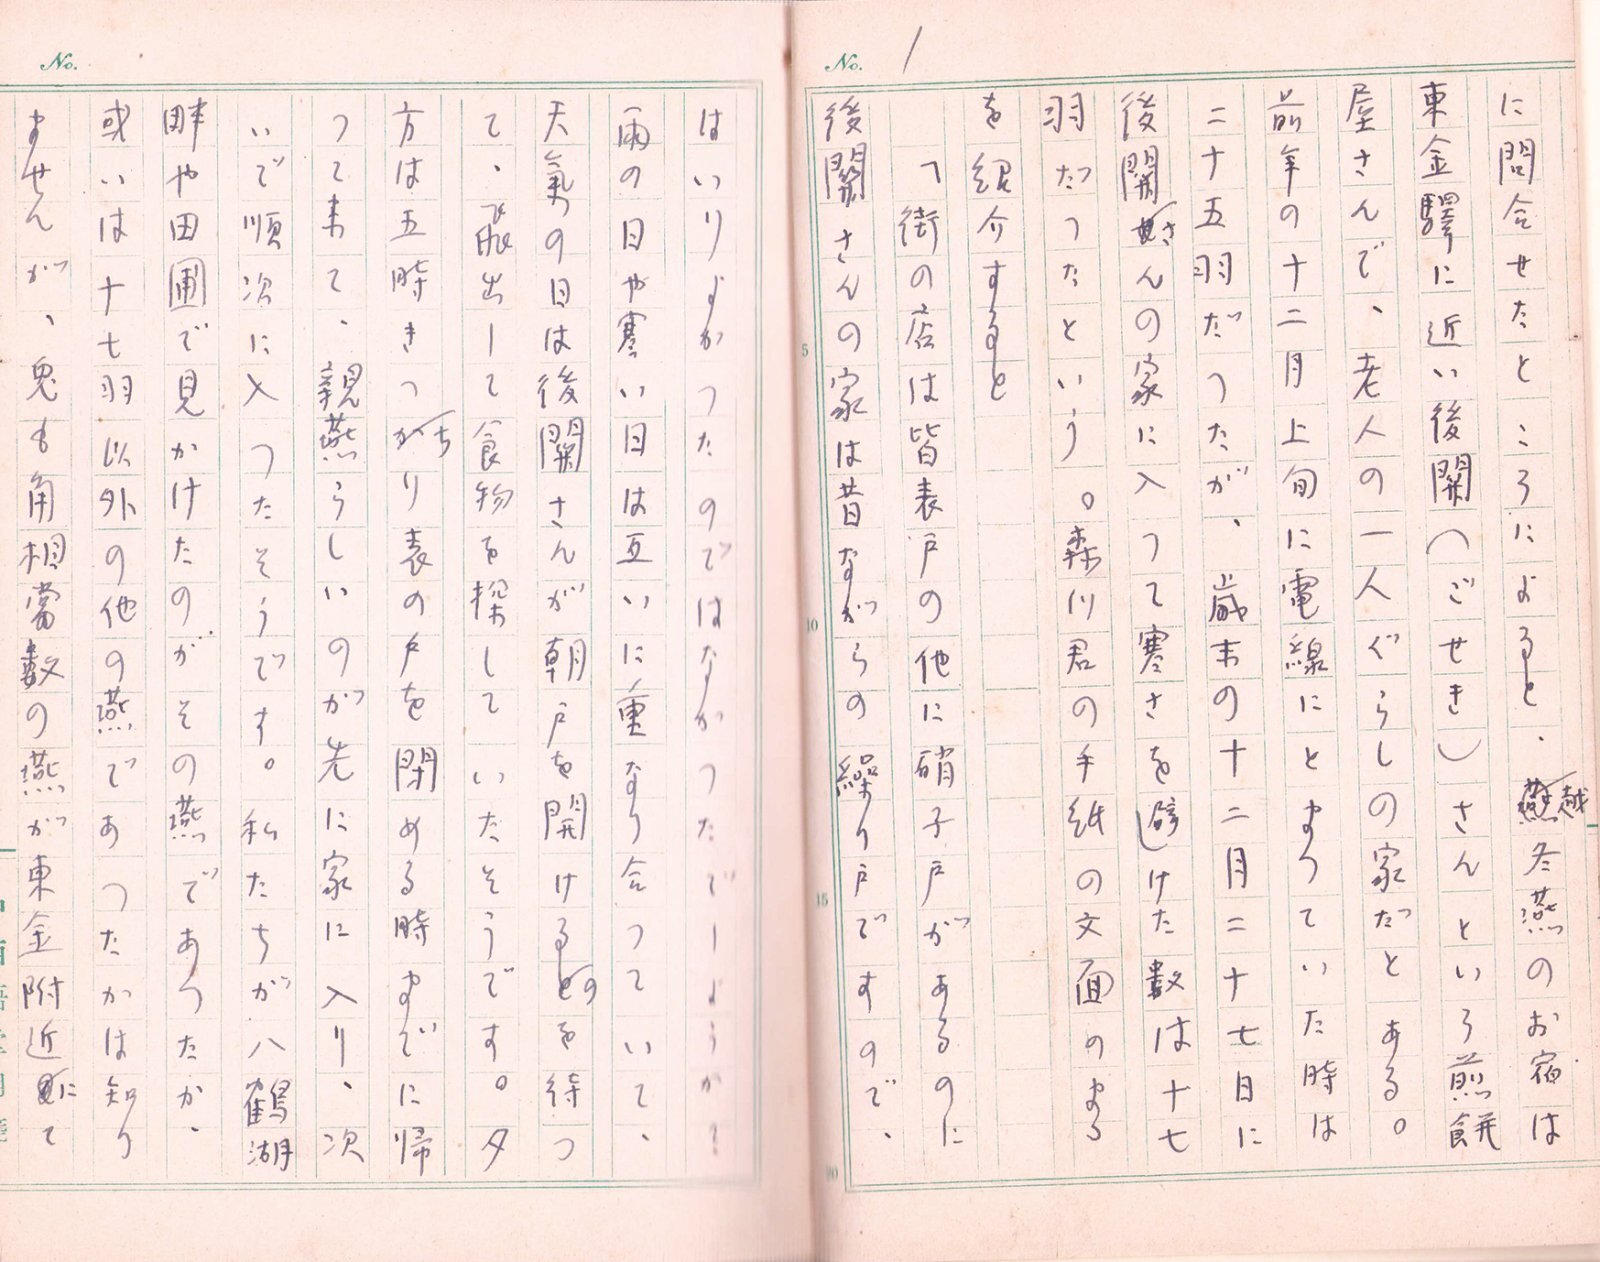 No. 1
に問合せたところによると、越冬燕のお宿は
東金驛に近い後関(ごせき)さんといふ煎餅
屋さんで、老人の一人ぐらしの家だとある。
前年の十二月上旬に電線にとまつていた時は
二十五羽だつたが、歳末の十二月二十七日に
後関さんの家に入つて寒さを避けた数は十七
羽だつたという。森川君の手紙の文面のまゝ
を紹介すると
「街の店は皆表戸の他に硝子戸があるのに
後関さんの家は昔ながらの繰り戸ですので、
5
10
15
20
No.
はいりよかつたのではなかつたでしようかて
雨の日や寒い日は互いに重なり合つていて、
天氣の日は後関さんが朝戸を開けるのを待つ
て、飛出して食物を探していたそうです。夕
方は五時きつちり表の戸を閉める時までに帰
つて来て、親燕らしいのが先に家に入り、次
いで順次に入つたそうです。私たちが八鶴湖
畔や田圃で見かけたのがその燕であつたか、
或いは十七羽以外の他の燕であつたかは知り
ませんが、兎も角相當数の燕が東金附近にて